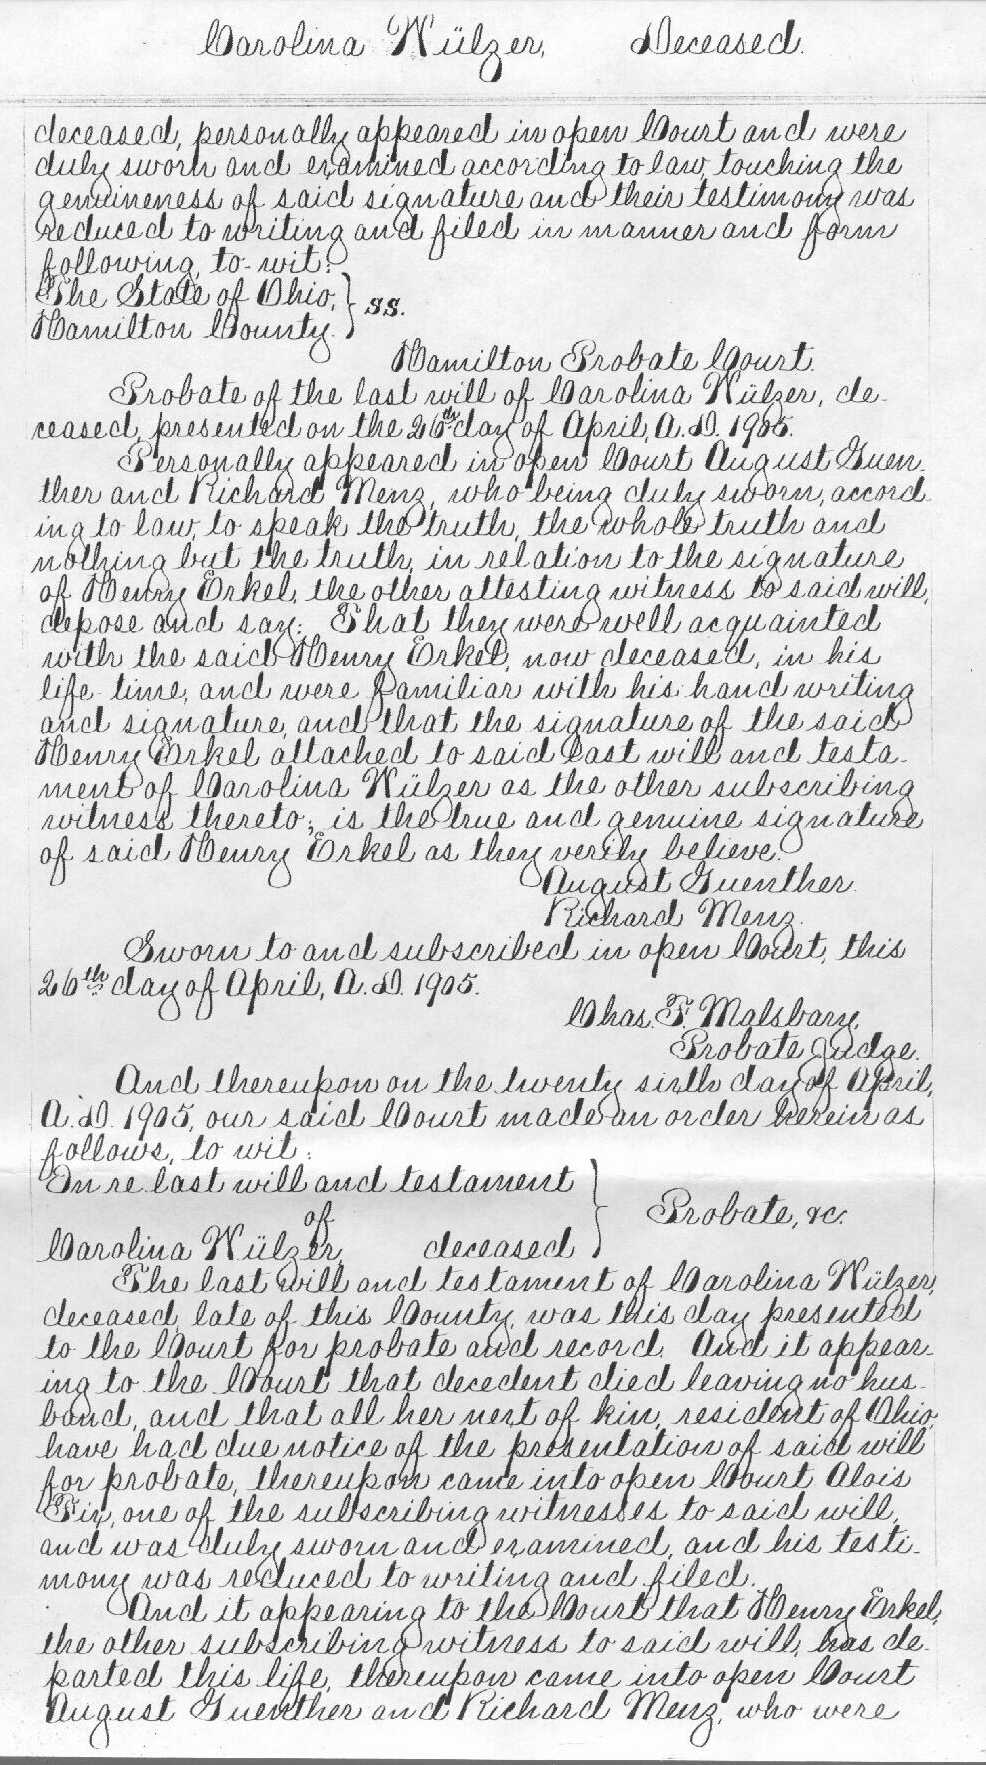 Carolina Wülzer, Deceased.
deceased, personally appeared in open Court and were
duly sworn and examined according to law, touching the
genuineness of said signature and their testimony was
reduced to writing and filed in manner and form
following, to-wit:
The State of Ohio, } ss.
Hamilton County.
Hamilton Probate Court.
Probate of the last will of Carolina Wülzer, de-
ceased, presented on the 26th day of April, A.D. 1905.
Personally appeared in open Court August Guen-
ther and Richard Menz, who being duly sworn, accord-
ing to law, to speak the truth, the whole truth and
nothing but the truth, in relation to the signature
of Henry Erkel, the other attesting witness to said will,
depose and say: That they were well acquainted
with the said Henry Erkel, now deceased, in his
life-time, and were familiar with his hand writing
and signature, and that the signature of the said
Henry Erkel attached to said last will and testa-
ment of Carolina Wülzer as the other subscribing
witness thereto; is the true and genuine signature
of said Henry Erkel as they verily believe.
August Guenther.
Richard Menz.
Sworn to and subscribed in open Court, this
26th day of April, A.D. 1905.
Chas. F. Malsbary,
Probate Judge.
And thereupon on the twenty sixth day of April,
A.D. 1905, our said Court made an order herein as
follows, to wit:
In re last will and testament
of } Probate, &c.
Carolina Wülzer, deceased
The last will and testament of Carolina Wülzer,
deceased, late of this County, was this day presented
to the Court for probate and record. And it appear-
ing to the Court that decedent died leaving no hus-
band, and that all her next of kin, resident of Ohio,
have had due notice of the presentation of said will
for probate, thereupon came into open Court Alois
Fix, one of the subscribing witnesses to said will,
and was duly sworn and examined, and his testi-
mony was reduced to writing and filed.
And it appearing to the Court that Henry Erkel,
the other subscribing witness to said will, has de-
parted this life, thereupon came into open Court
August Guenther and Richard Menz, who were